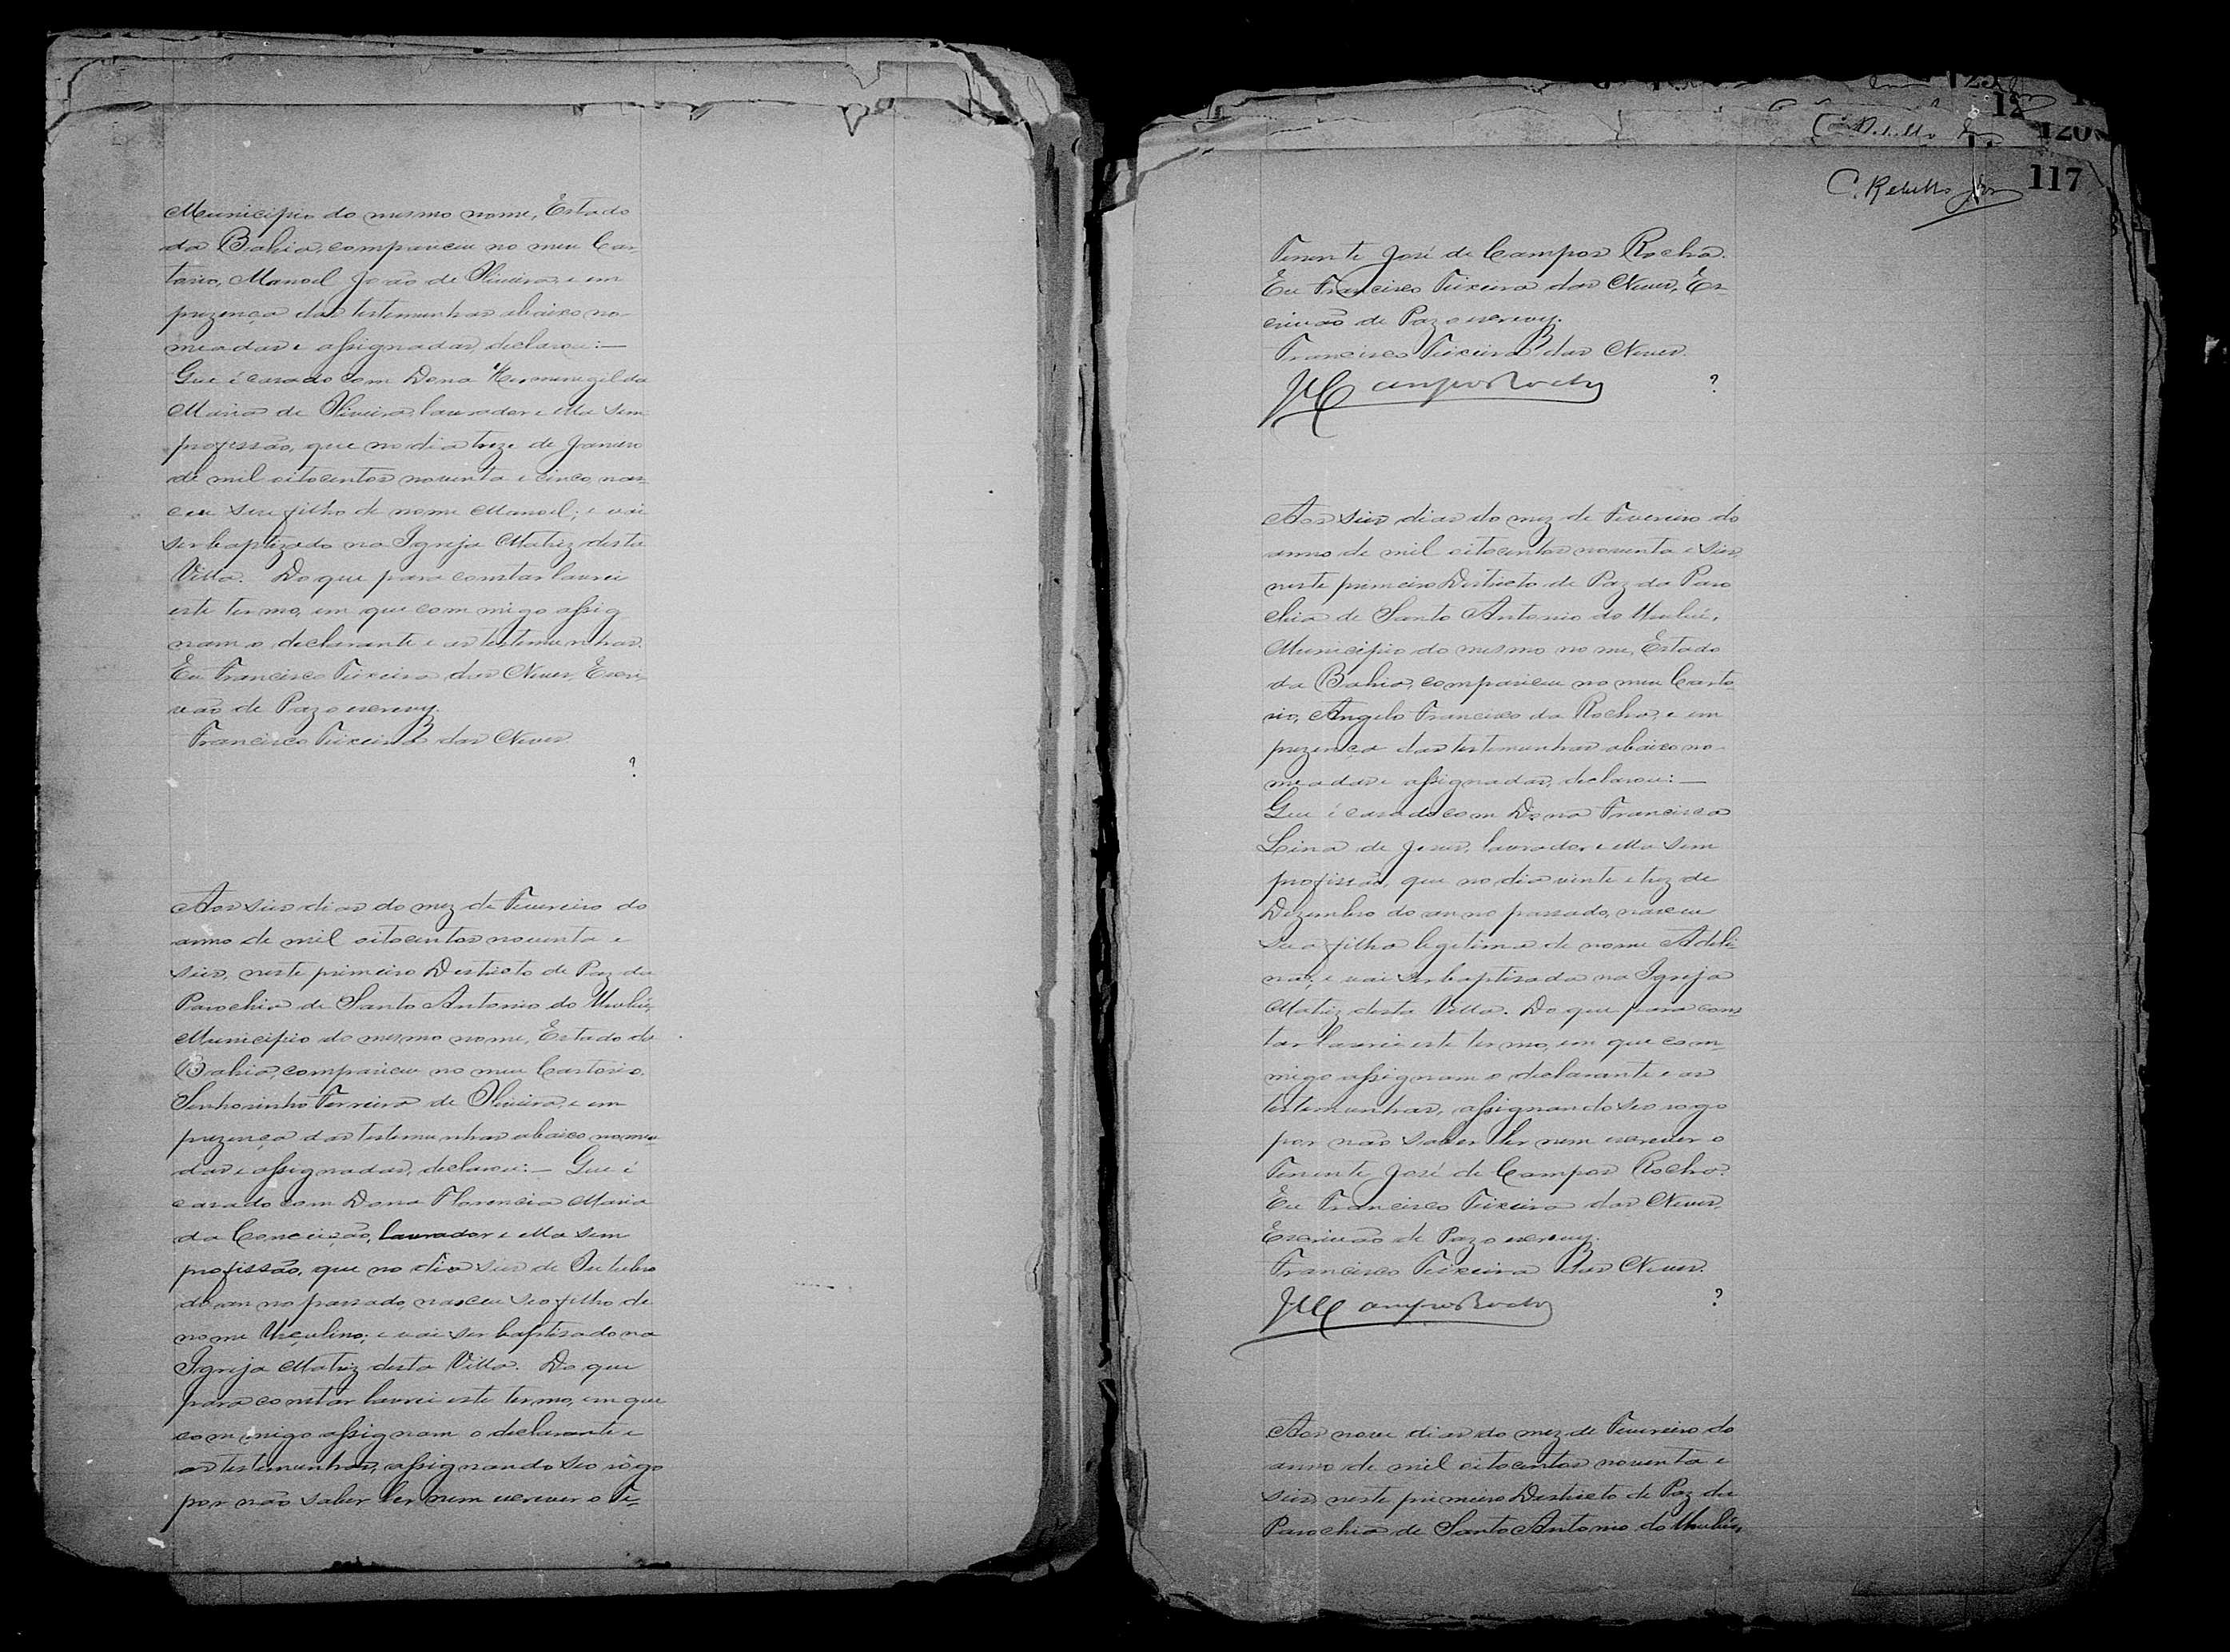 Municipio do mesmo nome, Estado
da Bahia, compareceu no meu Car-
torio, Manoel João de Oliveira, e em
prezença das testemunhas abaixo no-
meadas e assignadas, declarou:—
Que é casado com Dona Hermenegilda
Maria de Oliveira, lavrador e ella sem
profissão, que no dia treze de Janeiro
de mil oitocentos noventa e cinco, nas-
ceu seu filho de nome Manoel; e vai
ser baptizado na Igreja Matriz desta
Villa. Do que para constar lavrei
este termo, em que commigo assig
nam o declarante e as testemunhas.
Eu Francisco Teixeira das Neves, Escri-
vão de Paz o escrevy.
Francisco Teixeira das Neves
?
Aos seis dias do mez de Fevereiro do
anno de mil oitocentos noventa e
seis, neste primeiro Destricto de Paz da
Parochia de Santo Antonio do Urubú,
Municipio do mesmo nome, Estado da
Bahia, compareceu no meu Cartorio,
Senhorinho Ferreira de Oliveira, e em
prezença das testemunhas abaixo nomea-
das e assignadas, declarou:— Que é
casado com Dona Florencia Maria
da Conceição, lavrador e ella sem
profissão, que no dia seis de Outubro
do anno passado, nasceu seo filho de
nome Urculino; e vai ser baptisado na
Igreja Matriz desta Villa. Do que
para constar lavrei este termo, em que
commigo assignam o declarante e
as testemunhas, assignando seo rôgo
por não saber ler nem escrever o Te-
C. Rebello Jor 117
120
nente José de Campos Rocha.
Eu Francisco Teixeira das Neves, Es-
crivão de Paz o escrevy.
Francisco Teixeira das Neves.
JCamposRocha ?
Aos seis dias do mez de Fevereiro do
anno de mil oitocentos noventa e seis,
neste primeiro Destricto de Paz da Paro
chia de Santo Antonio do Urubú,
Municipio do mesmo nome, Estado
da Bahia, compareceu no meu Carto-
rio, Angelo Francisco da Rocha, e em
prezença das testemunhas abaixo no-
meadas e assignadas, declarou:—
Que é casado com Dona Francisca
Lina de Jesus, lavrador e ella sem
profissão, que no dia vinte e trez de
Dezembro do anno passado, nasceu
sua filha legitima de nome Adeli-
na; e vai ser baptisada na Igreja
Matriz desta Villa. Do que para cons-
tar lavrei este termo, em que com-
migo assignam o declarante e as
testemunhas, assignando seo rogo
por não saber ler nem escrever o
Tenente José de Campos Rocha.
Eu Francisco Teixeira das Neves,
Escrivão de Paz o escrevy.
Francisco Teixeira das Neves.
JCamposRocha ?
Aos nove dias do mez de Fevereiro do
anno de mil oitocentos noventa e
seis, neste primeiro Destricto de Paz da
Parochia de Santo Antonio do Urubú,